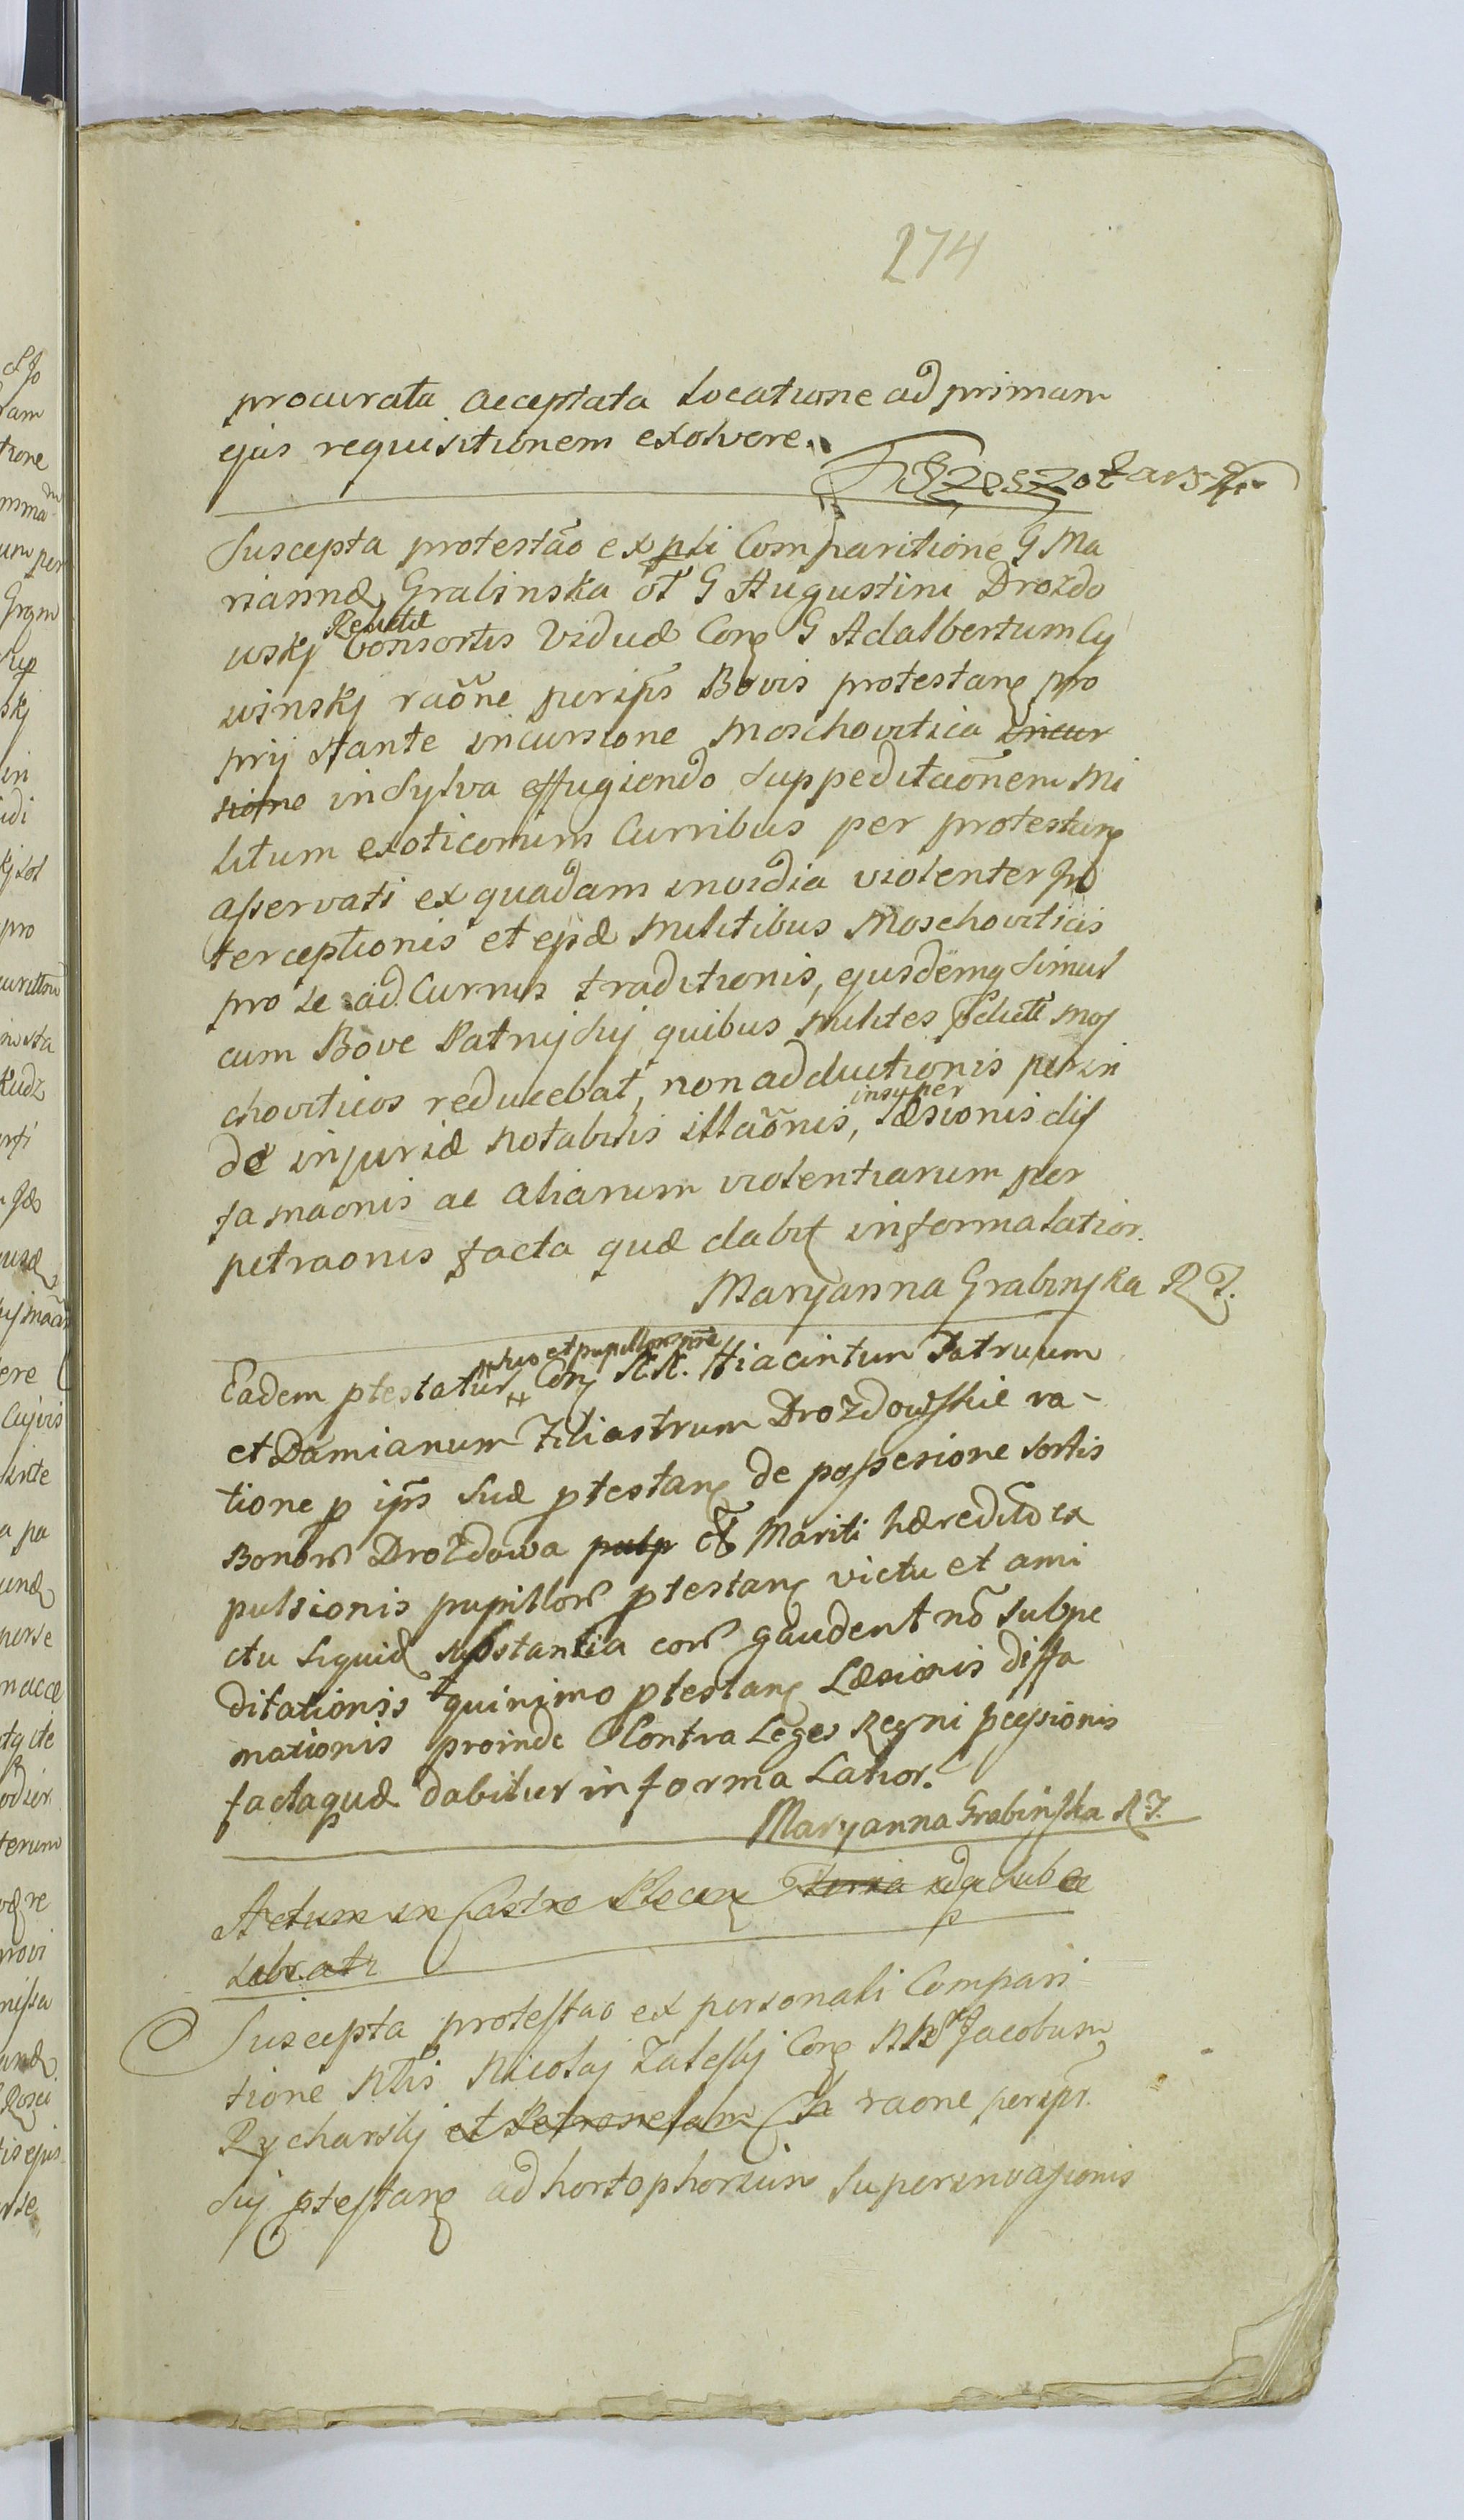 274
procurata acceptata locatione ad primam
ejus requisitionem exolvere.
Szeszotarski
Suscepta protestão ex pli Comparitione G Ma
riannæ Grabinska ol G Augustini Drozdo
wskj Relictæ Consortis Viduæ Con G Adalbertum Cy
winskj raõne peripš Bovis protestan pro
prij stante incursione Moschovitica incur
sione in Sylva effugiendo suppeditaõnem mi
litum exoticorum Curribus per protestan
asservati ex quadam invidia violenter In
terceptionis et ejdæ militibus Moschoviticis
pro se ad Currus traditionis, ejusdemq simul
cum Bove
quibus milites Mos
choviticos reducebat, non adductionis perin
de injuriæ notabilis illaõnis, insuper læsionis dif
famaonis ac aliarum violentiarum per
petraonis facta quæ dabit in forma latior.
Maryanna Grabinska R T.
Eadem ptestatur suo et pupillor nõe Con NN. Hiacintum Patruum
et Damianum Filiastrum Drozdowskie ra-
tione p ipš suæ ptestan de possesione sortis
Bonor Drozdowa pulp ol Mariti hæredit ex
pulsionis pupillor ptestan victu et ami
ctu siquid substantia eor gaudent nõ subpe
ditationis quinimo ptestan Læsionis diffa
mationis proinde Contra Leges Regni
facta quæ dabitur in forma Latior.
Maryanna Grabinska R T.
Actum in Castro Plocen feria
Suscepta protestao ex personali Compari
tione Nlis Nicolaj Zaleskj Con Jacobum
Rycharskj et Petronelam raone peripš.
sui ptestan ad hortophorium superinvasionis